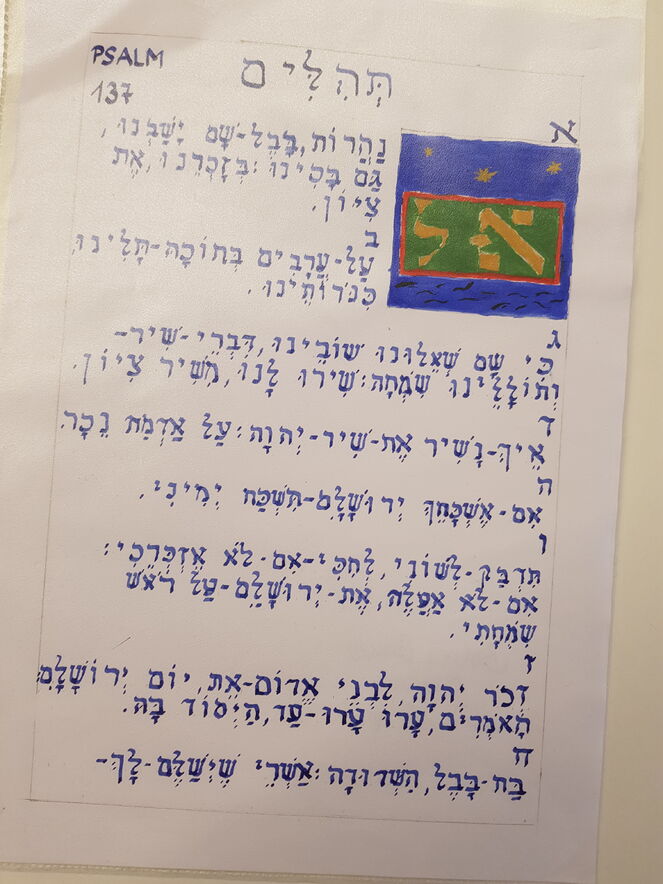 PSALM
137
תְּהִלִּים
א
עַל
נַהֲרוֹת, בָּבֶל-שָׁם יָשַׁבְנוּ,
גַּם בָּכִינוּ: בְּזָכְרֵנוּ, אֶת
צִיּוֹן.
ב
עַל-עֲרָבִים בְּתוֹכָהּ-תָּלִינוּ
כִּנֹּרוֹתֵינוּ.
ג
כִּי שָׁם שְׁאֵלוּנוּ שׁוֹבֵינוּ, דִּבְרֵי-שִׁיר-
וְתוֹלָלֵינוּ שִׂמְחָה: שִׁירוּ לָנוּ, מִשִּׁיר צִיּוֹן.
ד
אֵיךְ-נָשִׁיר אֶת-שִׁיר-יְהוָה: עַל אַדְמַת נֵכָר.
ה
אִם-אֶשְׁכָּחֵךְ יְרוּשָׁלִָם-תִּשְׁכַּח יְמִינִי.
ו
תִּדְבַּק-לְשׁוֹנִי, לְחִכִּי-אִם-לֹא אֶזְכְּרֵכִי:
אִם-לֹא אַעֲלֶה, אֶת-יְרוּשָׁלִַם-עַל רֹאשׁ
שִׂמְחָתִי.
ז
זְכֹר יְהוָה, לִבְנֵי אֱדוֹם-אֵת, יוֹם יְרוּשָׁלִָם
הָאֹמְרִים, עָרוּ עָרוּ-עַד, הַיְסוֹד בָּהּ.
ח
בַּת-בָּבֶל, הַשְּׁדוּדָה: אַשְׁרֵי שֶׁיְשַׁלֶּם-לָךְ-